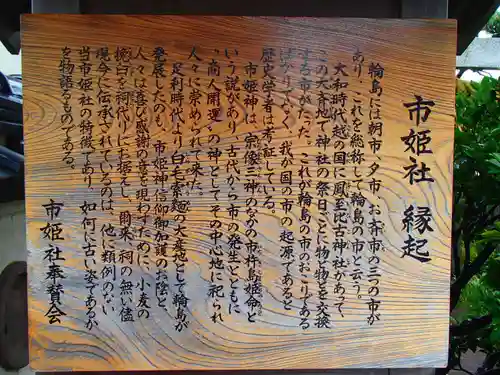 市姫社 縁起
輪島には朝市、夕市、お斉市の三つの市が
あり、これを総称して輪島の市と云う。
大和時代越の国に鳳至比古神社があって、
この大斉地で神社の祭日ごとに物と物とを交換
する市がたった。これが輪島の市のおこりである
ばかりでなく、我が国の市の起原であると
歴史学者は考証している。
市姫神は、宗像三神のなかの市杵島姫命と
いう説があり、古代から市の発生とともに
、商人開運、の神としてその中心地に祀られ
人々に崇められて来た。
足利時代より白毛索麺の大産地として輪島が
発展したのも、市姫神信仰御加護のお陰と
人々は喜び感謝の意を現わすために、小麦の
挽臼を祠代りにお据えし、爾来、祠の無い儘
現今に伝承されているのは、他に類例のない
当市姫社の特徴であり、如何に古い姿であるか
を物語るものである。
市姫社奉賛会